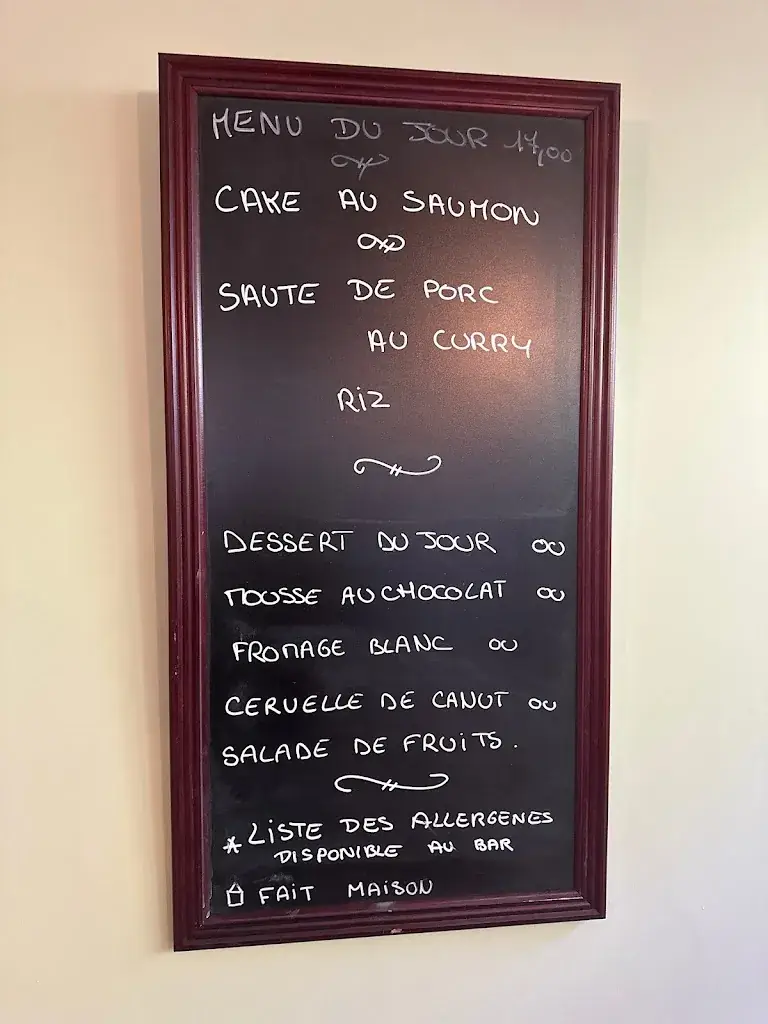 MENU DU JOUR 17,00
CAKE AU SAUMON
SAUTE DE PORC
AU CURRY
RIZ
DESSERT DU JOUR OU
MOUSSE AU CHOCOLAT OU
FROMAGE BLANC OU
CERVELLE DE CANUT OU
SALADE DE FRUITS.
* LISTE DES ALLERGENES
DISPONIBLE AU BAR
FAIT MAISON